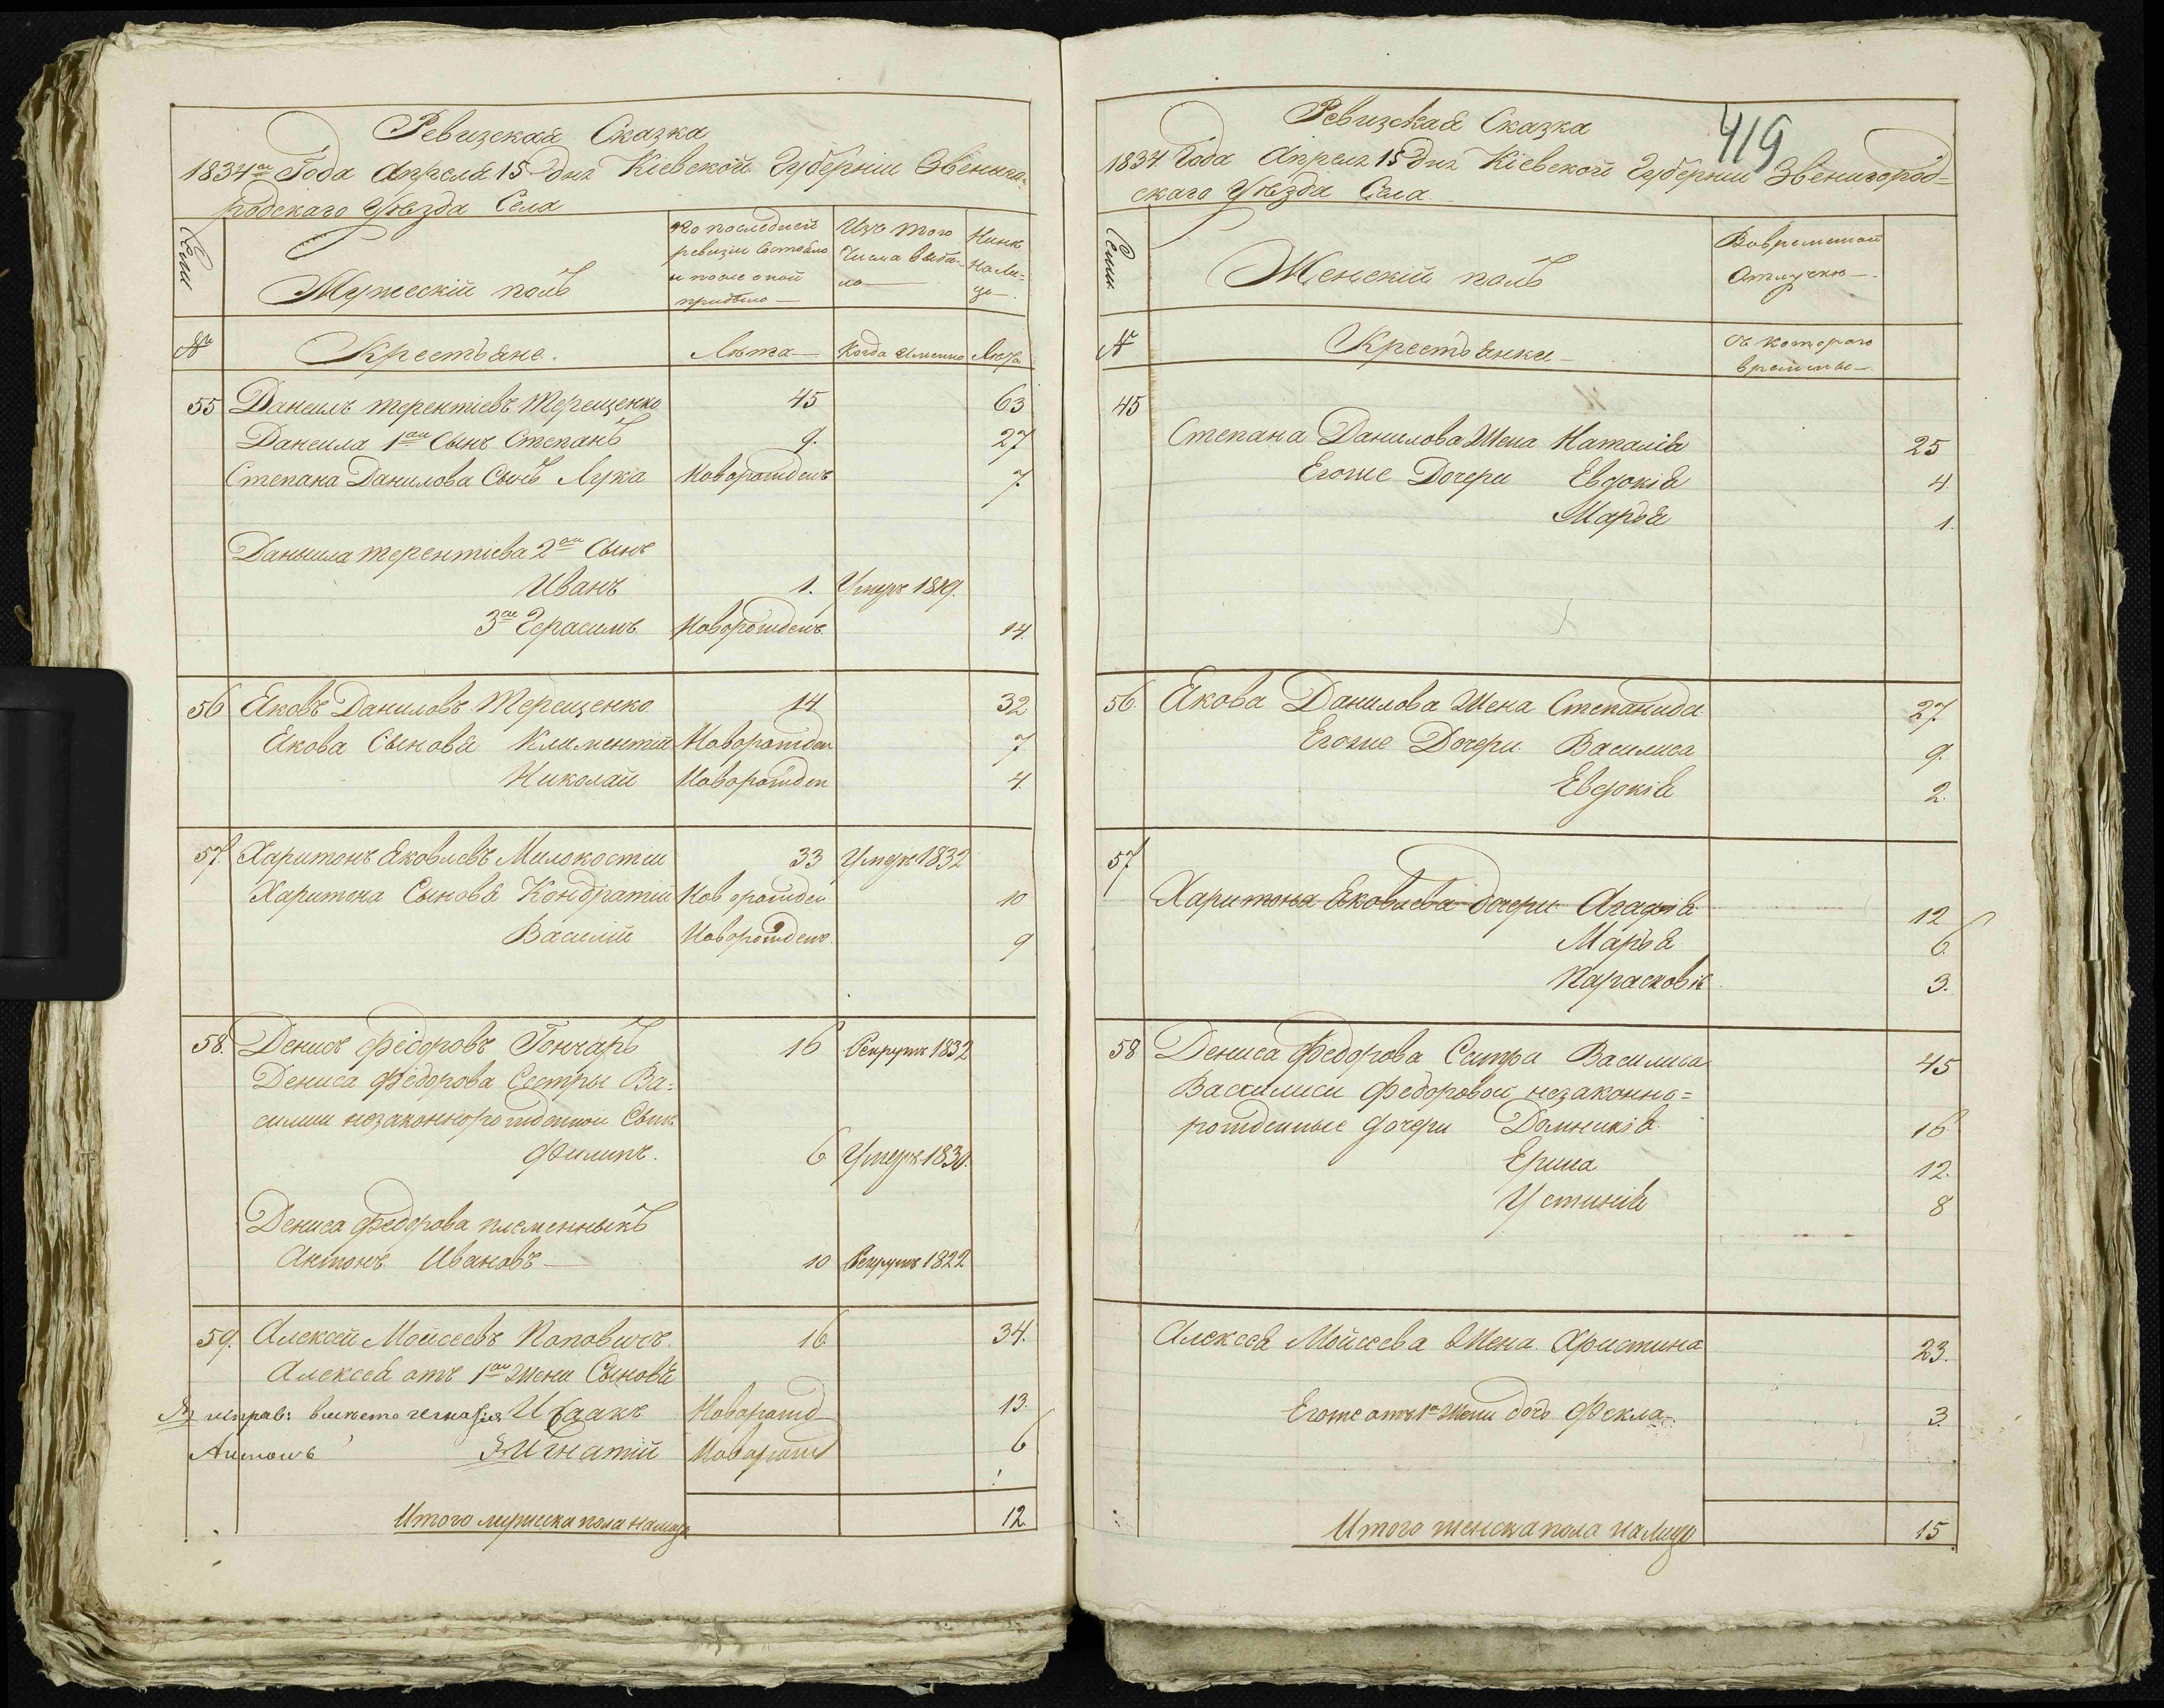 Ревизская Сказка
1834го Года Апреля 15 Дня Кіевской Губерніи Звениго-
родскаго Уѣзда Села
Семьи
Мужескій полъ
По последней
ревизіи состояло
и после оной
прибыло
Изъ того
Числа выбы-
ло
Нынѣ
на Ли-
цо
№
Крестьяне.
Лѣта
Когда именно
Лѣта
55 Данеилъ терентіевъ Терещенко 45 63
Данеила 1ый Сынъ Степанъ 9. 27
Степана Данилова Сынъ Лука Новорожденъ 7
Даныила терентіева 2ый Сынъ
Иванъ 1. Умеръ 1819.
3й Герасимъ Новорожденъ 14.
56 Яковъ Даниловъ Терещенко 14 32
Якова Сыновя Климентій Новорожден 7
Николай Новорожден 4.
57. Харитонъ Яковлевъ Милокостіи 33 Умеръ 1832
Харитона Сыновя Кондратіи Новорожден 10
Василій Новорожденъ 9
58. Денисъ Федоровъ Гончаръ 16 Рекрутъ 1832
Дениса Федорова Сестры Ва-
силиси незаконнорожденной Сынъ
Филипъ. 6 Умеръ 1830.
Дениса Федорова племенныкъ
Антонъ Ивановъ 10 Рекрутъ 1822
59. Алексей Мойсеевъ Поповичъ. 16 34.
Алексея отъ 1ой жени Сыновя
исправ: вместо Игнатія Исаакъ Новорожд 13.
Антонъ Игнатій Новорожд 6
Итого мужеска пола налицо 12.
419
Ревизская Сказка
1834 Года Апреля 15 Дня Кіевской Губерніи Звенигород-
скаго Уѣзда Села
Семьи
Женскій полъ
Вовременной
Отлучкѣ
№
Крестьянки
Съ котораго
времены
45
Степана Данилова Жена Наталія 25
Егоже Дочери Евдокія 4.
Марья 1.
56. Якова Данилова Жена Степанида 27
Егоже Дочери Василиса 9.
Евдокія 2.
57
Харитона Яковлева дочери Агафія 12
Марья 6.
Парасковія 3.
58 Дениса Федорова Сестра Василиса 45
Василиси Федоровой незаконно-
рожденные дочери Домникія 16
Ерина 12.
Устинія 8
Алексея Мойсеева Жена Христина 23.
Егоже отъ 1й Жени дочь Фекла 3.
Итого женска пола налицо 15